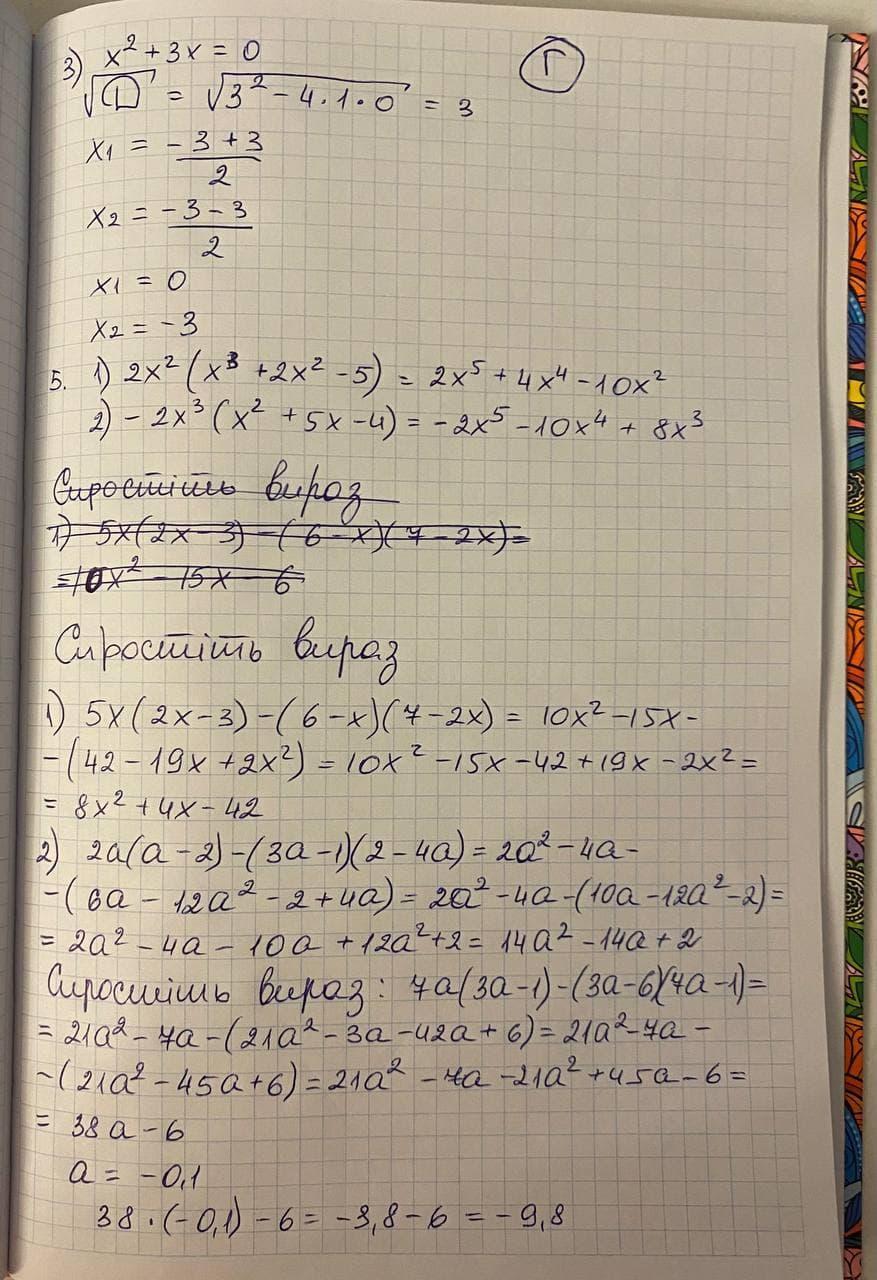 3) x² + 3x = 0
Г
√D = √3² - 4·1·0 = 3
x₁ = (-3+3)/2
x₂ = (-3-3)/2
x₁ = 0
x₂ = -3
5. 1) 2x² (x³ + 2x² - 5) = 2x⁵ + 4x⁴ - 10x²
2) - 2x³ (x² + 5x - 4) = - 2x⁵ - 10x⁴ + 8x³
Спростіть вираз
1) 5x(2x - 3) - (6 - x)(7 - 2x) =
= 10x² - 15x - 6
Спростіть вираз
1) 5x(2x-3) - (6-x)(7-2x) = 10x² - 15x -
- (42 - 19x + 2x²) = 10x² - 15x - 42 + 19x - 2x² =
= 8x² + 4x - 42
2) 2a(a-2) - (3a-1)(2-4a) = 2a² - 4a -
- (6a - 12a² - 2 + 4a) = 2a² - 4a - (10a - 12a² - 2) =
= 2a² - 4a - 10a + 12a² + 2 = 14a² - 14a + 2
Спростіть вираз: 7a(3a-1) - (3a-6)(7a-1) =
= 21a² - 7a - (21a² - 3a - 42a + 6) = 21a² - 7a -
- (21a² - 45a + 6) = 21a² - 7a - 21a² + 45a - 6 =
= 38a - 6
a = -0,1
38·(-0,1) - 6 = -3,8 - 6 = -9,8